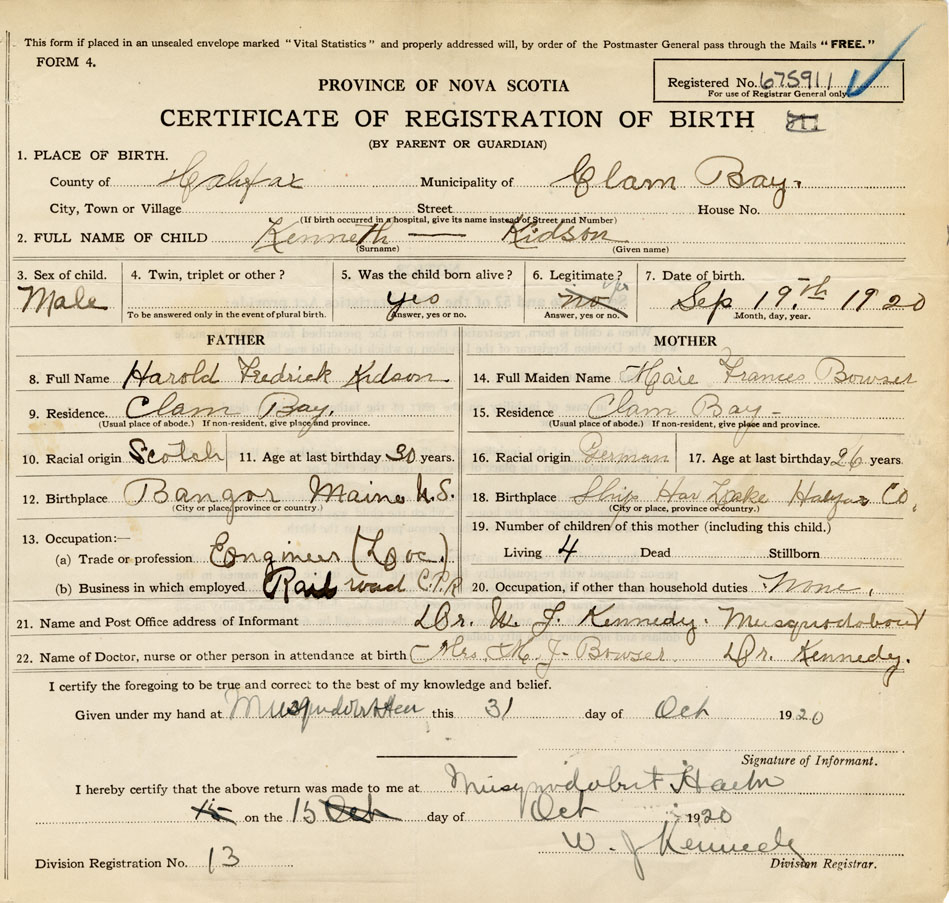 This form if placed in an unsealed envelope marked "Vital Statistics" and properly addressed will, by order of the Postmaster General pass through the Mails "FREE."
FORM 4.
PROVINCE OF NOVA SCOTIA
Registered No. 675911
For use of Registrar General only
CERTIFICATE OF REGISTRATION OF BIRTH
(BY PARENT OR GUARDIAN)
1. PLACE OF BIRTH.
County of Halifax Municipality of Clam Bay.
City, Town or Village Street House No.
(If birth occurred in a hospital, give its name instead of Street and Number)
2. FULL NAME OF CHILD Kenneth — Kidson
(Surname) (Given name)
3. Sex of child. 4. Twin, triplet or other? 5. Was the child born alive? 6. Legitimate? 7. Date of birth.
Male yes no yes Sep 19th 1920
To be answered only in the event of plural birth. Answer, yes or no. Answer, yes or no. Month, day, year.
FATHER MOTHER
8. Full Name Harold Fredrick Kidson 14. Full Maiden Name Maie Frances Bowser
9. Residence Clam Bay. 15. Residence Clam Bay -
(Usual place of abode.) If non-resident, give place and province. (Usual place of abode.) If non-resident, give place and province.
10. Racial origin Scotch 11. Age at last birthday 30 years. 16. Racial origin German 17. Age at last birthday 26 years.
12. Birthplace Bangor Maine U.S. 18. Birthplace Ship Har Lake Halifax CO.
(City or place, province or country.) (City or place, province or country.)
13. Occupation:— 19. Number of children of this mother (including this child.)
(a) Trade or profession Engineer (Loc.) Living 4 Dead Stillborn
(b) Business in which employed Rail road C.P.R 20. Occupation, if other than household duties None.
21. Name and Post Office address of Informant Dr. W. J. Kennedy. Musquodoboit
22. Name of Doctor, nurse or other person in attendance at birth Mrs. M. J. Bowser Dr. Kennedy.
I certify the foregoing to be true and correct to the best of my knowledge and belief.
Given under my hand at this 31 day of Oct 1920
Signature of Informant.
I hereby certify that the above return was made to me at Musquodobut
15 on the 15 Oct day of Oct 1920
W. J Kennedy
Division Registration No. 13 Division Registrar.